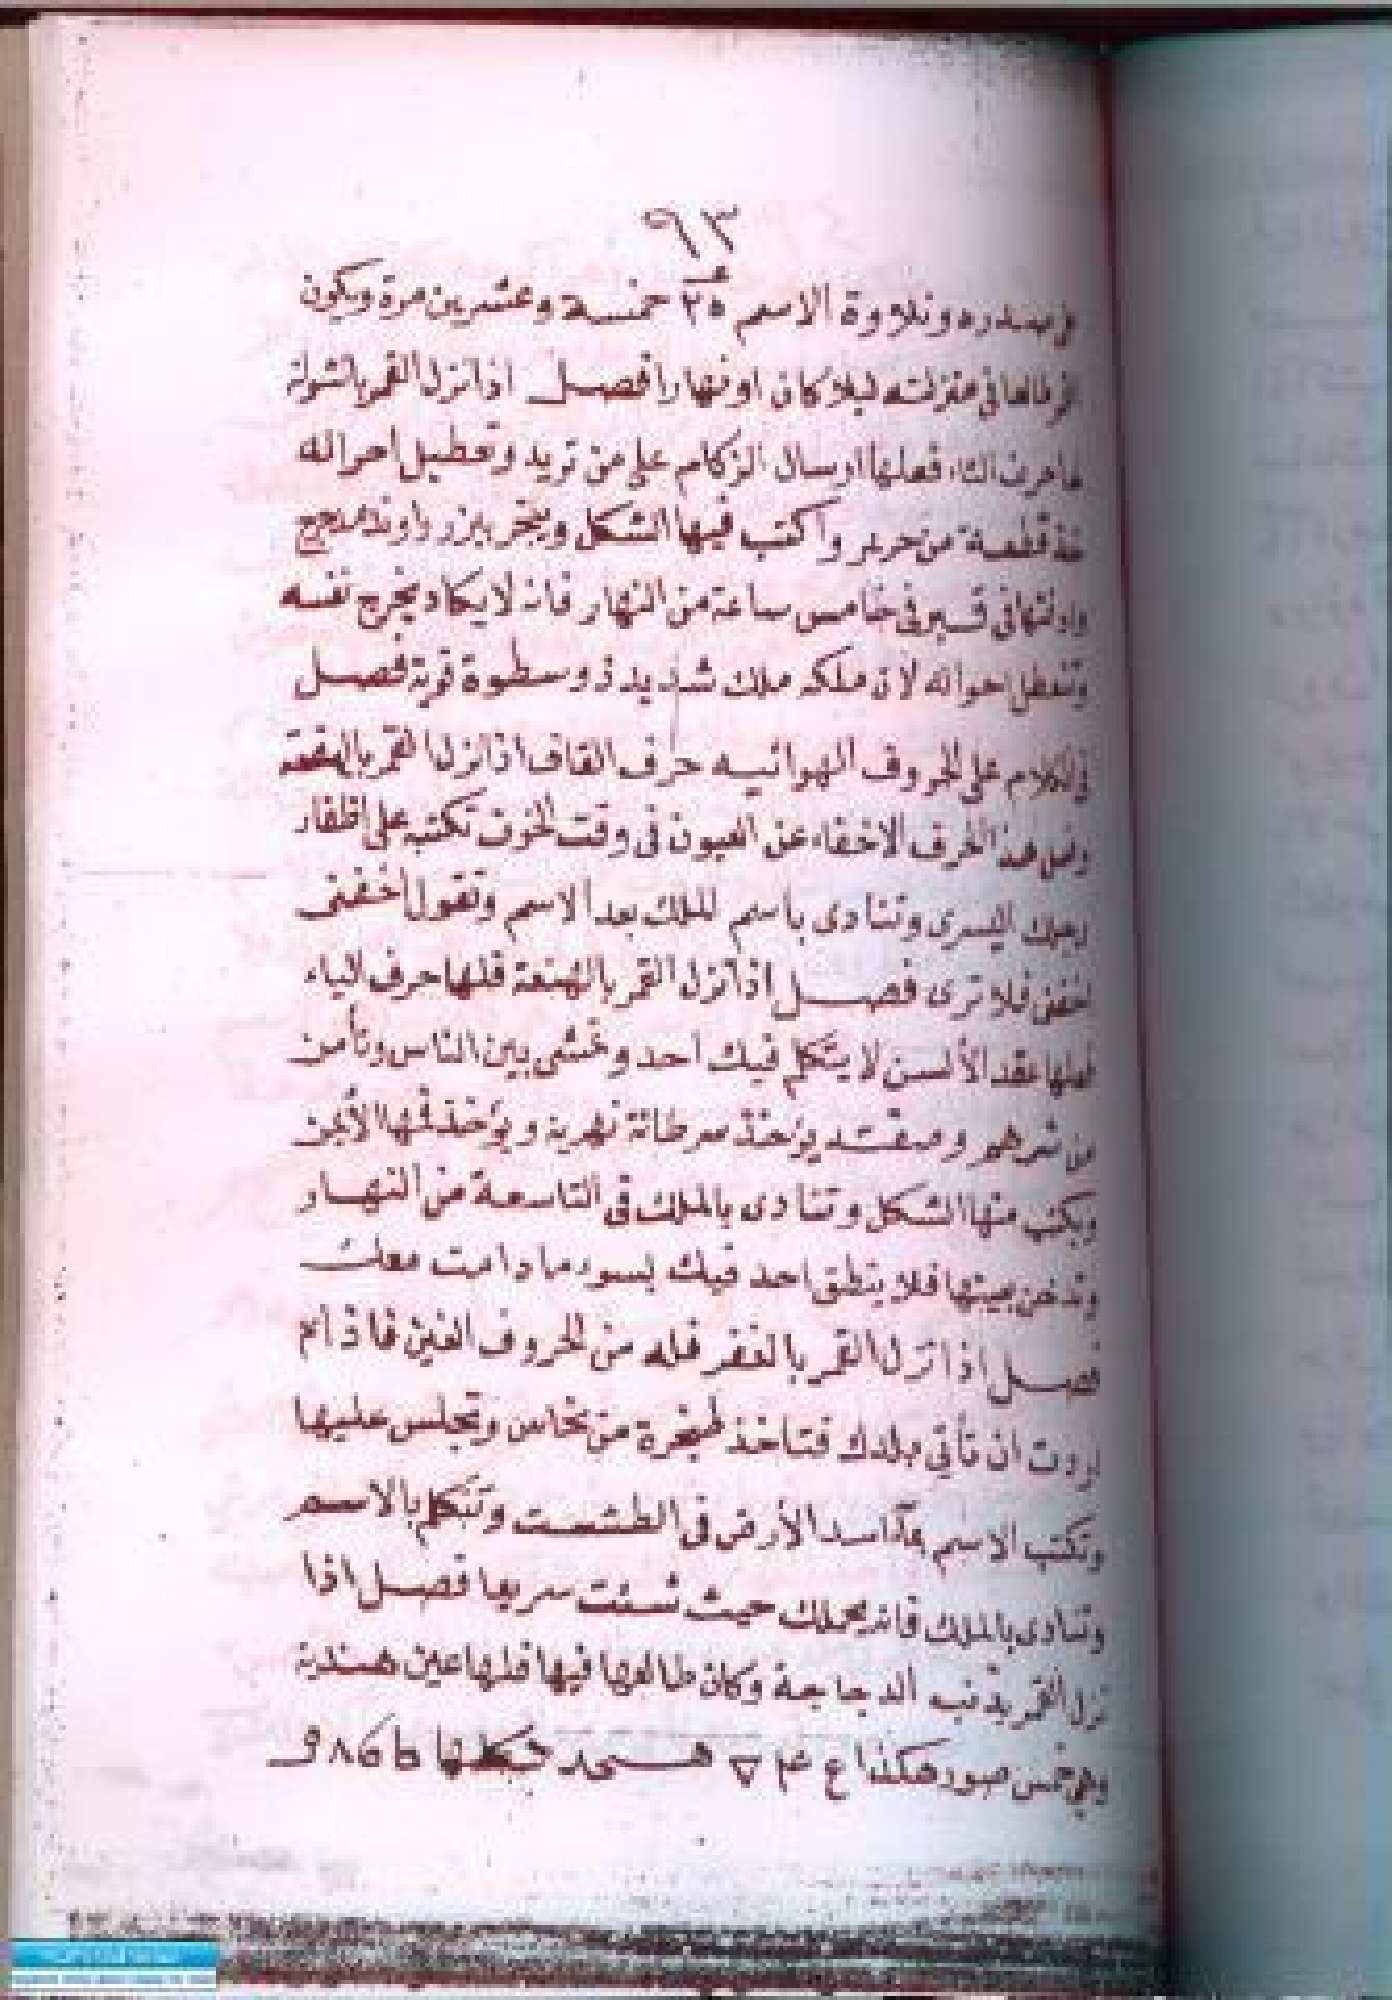 ٩٣
في صدره وتلاوة الاسم ٢٥ خمسة وعشرين مرة ويكون
في منزلته ليلا كان او نهارا فصل اذا نزل القمر بالشولة
حرف الثاء فعلها ارسال الزكام على من تريد وتعطيل احواله
خذ قطعة من حرير واكتب فيها الشكل ويبخر ببزر راوند مدحرج
وادفنها في قبر في خامس ساعة من النهار فانه لا يكاد يخرج نفسه
وتتعطل احواله لان ملكه ملك شديد ذو سطوة قوية فصل
في الكلام على الحروف الهوائيه حرف القاف اذا نزل القمر بالهقعة
وفعل هذا الحرف الاخفاء عن العيون في وقت الخوف تكتبه على اظفار
رجلك اليسرى وتنادى باسم الملك بعد الاسم وتقول اخفنى
اخفنى فلا ترى فصل اذا نزل القمر بالهنعة فلها حرف الياء
فعلها عقد الألسن لا يتكلم فيك احد وتمشى بين الناس وتأمن
من شرهم وصفته يؤخذ سرطانة نهرية ويؤخذ فمها الأيمن
ويكتب منها الشكل وتنادى بالملك في التاسعة من النهار
وتدخن فلا ينطق احد فيك بسوء ما دامت معك
فصل اذا نزل القمر بالغفر فله من الحروف الغين فاذا
اردت ان تأتي بلدك فتاخذ من نحاس وتجلس عليها
وتكتب الاسم اسد الأرض في الطشت وتتكلم بالاسم
وتنادى بالملك فانه يحملك حيث شئت سريعا فصل اذا
نزل القمر بذنب الدجاجة وكان طالعها فيها فلها عين هندية
وهي خمس صور هكذا ع